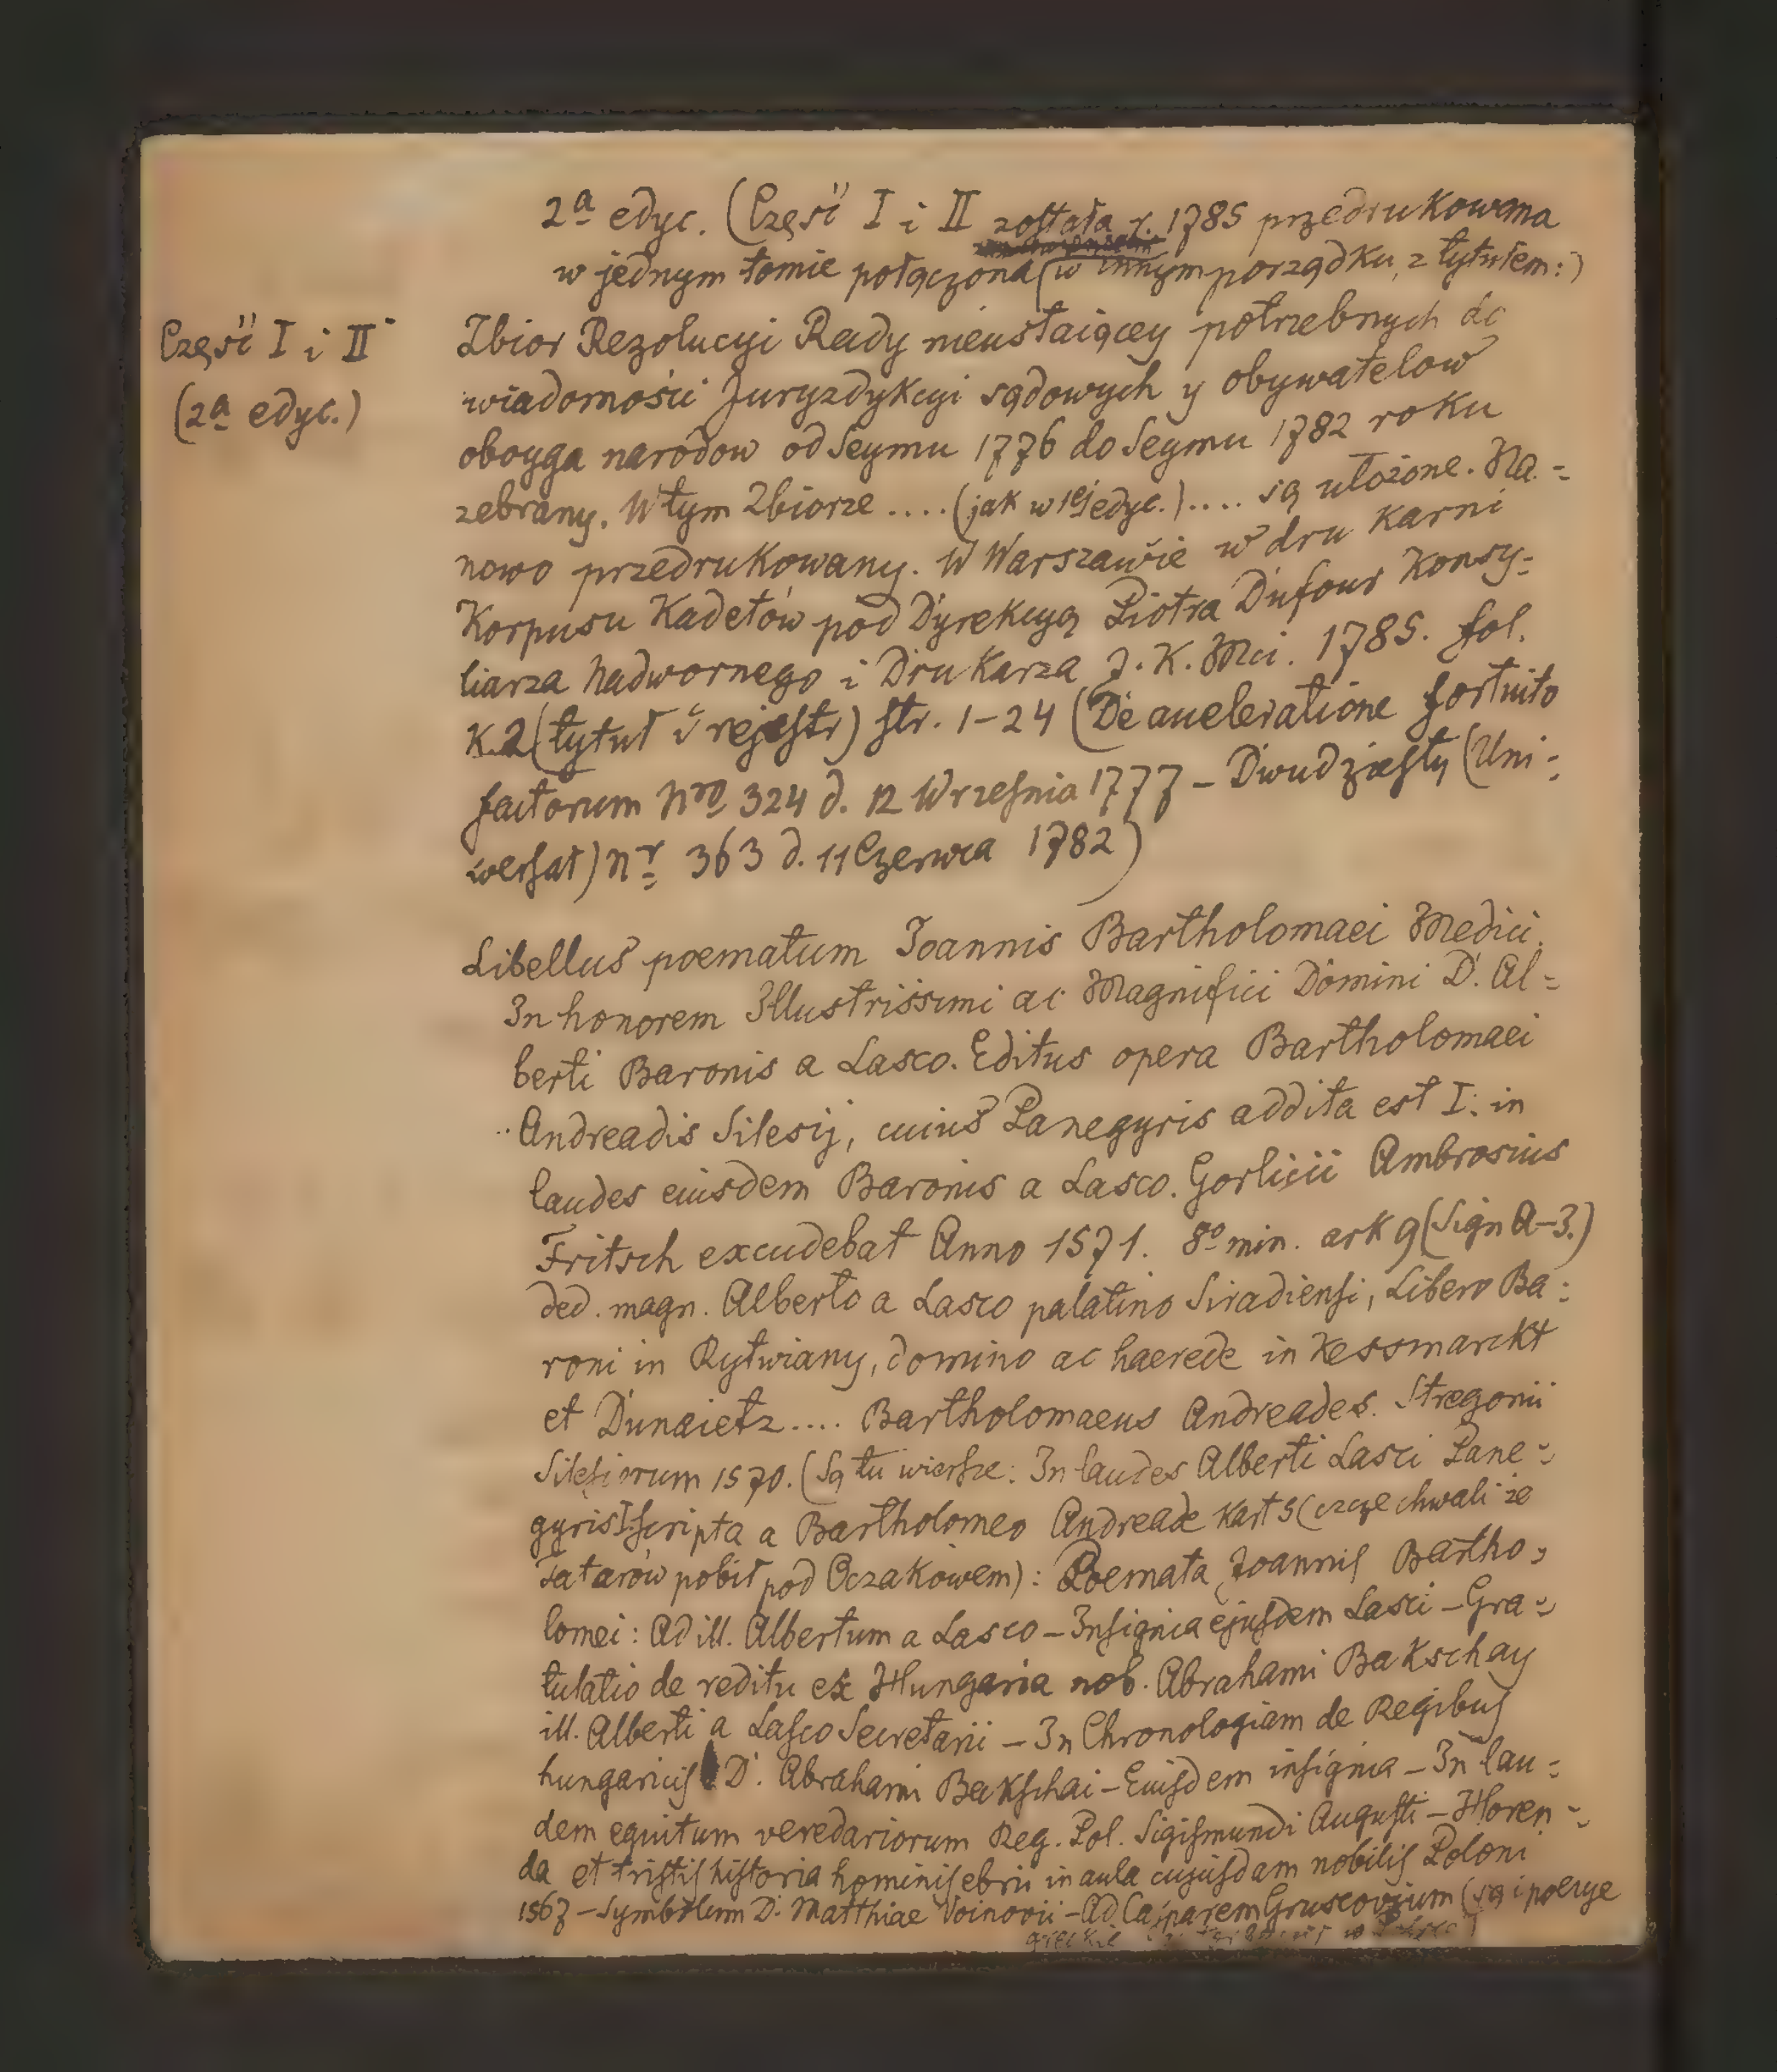 2a edyc. (Część I i II została r. 1785 przedrukowana
w jednym tomie połączona (w innym porządku, z tytułem:)
Część I i II
(2a edyc.)
Zbior Rezolucyi Rady nieustaiącey potrzebnych do
wiadomości Juryzdykcyi sądowych y obywatelow
oboyga narodow od Seymu 1776 do Seymu 1782 roku
zebrany. W tym Zbiorze .... (jak w 1ej edyc.) .... są ułożone. Na=
nowo przedrukowany. W Warszawie w drukarni
Korpusu Kadetów pod Dyrekcyą Piotra Dufour Konsy=
liarza Nadwornego i Drukarza J. K. Mci. 1785. fol.
K. 2 (tytuł i rejestr) str. 1-24 (De acceleratione fortuito
factorum Nro 324 d. 12 Wrzesnia 1777 - Dwudziesty (Uni=
wersał) nr 363 d. 11 Czerwca 1782)
Libellus poematum Joannis Bartholomaei Medici.
In honorem Illustrissimi ac Magnifici Domini D. Al=
berti Baronis a Lasco. Editus opera Bartholomaei
Andreadis Silesij, cuius Panegyris addita est I: in
laudes eiusdem Baronis a Lasco. Gorlicii Ambrosius
Fritsch excudebat Anno 1571. 8o min. ark 9 (Sign A-3.)
ded. magn. Alberto a Lasco palatino Siradiensi, Libero Ba=
roni in Rytwiany, domino ac haerede in Kessmarckt
et Dunaietz .... Bartholomaeus Andreades. Stregonii
Silesiorum 1570. (Są tu wiersze: In laudes Alberti Lasci Pane=
gyris I scripta a Bartholomeo Andreade kart 5 ( chwali że
Tatarów pobił pod Oczakowem): Poemata Joannis Bartho=
lomei: Ad ill. Albertum a Lasco - Insignia ejusdem Lasci - Gra=
tulatio de reditu ex Hungaria nob. Abrahami Bakschay
ill. Alberti a Lasco Secretarii - In Chronologiam de Regibus
hungaricis D. Abrahami Bakschai - Euisdem insignia - In lau=
dem equitum veredariorum Reg. Pol. Sigismundi Augusti - Horen=
da et tristis historia hominis ebrii in aula cujusdam nobilis Poloni
1567 - Symbolum D. Matthiae Voinovii - Ad Casparem Gruscovium (są i poezye